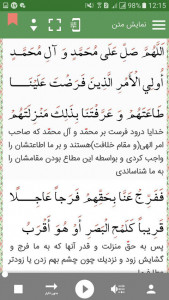 12:15
نمایش متن
اللَّهُمَّ صَلِّ عَلَى مُحَمَّدٍ وَ آلِ مُحَمَّدٍ
أُولِي الْأَمْرِ الَّذِينَ فَرَضْتَ عَلَيْنَا
طَاعَتَهُمْ وَ عَرَّفْتَنَا بِذَلِكَ مَنْزِلَتَهُمْ
خدایا درود فرست بر محمّد و آل محمّد که صاحب
امر الهی(و مقام خلافت)هستند و بر ما اطاعتشان را
واجب کردی و بواسطه این مطاع بودن مقامشان را
به ما شناساندی
فَفَرِّجْ عَنَّا بِحَقِّهِمْ فَرَجاً عَاجِلاً
قَرِيباً كَلَمْحِ الْبَصَرِ أَوْ هُوَ أَقْرَبُ
پس به حقّ منزلت و قدر آنها که به ما فرج و
گشایش زود و نزدیك چون چشم بهم زدن یا زودتر